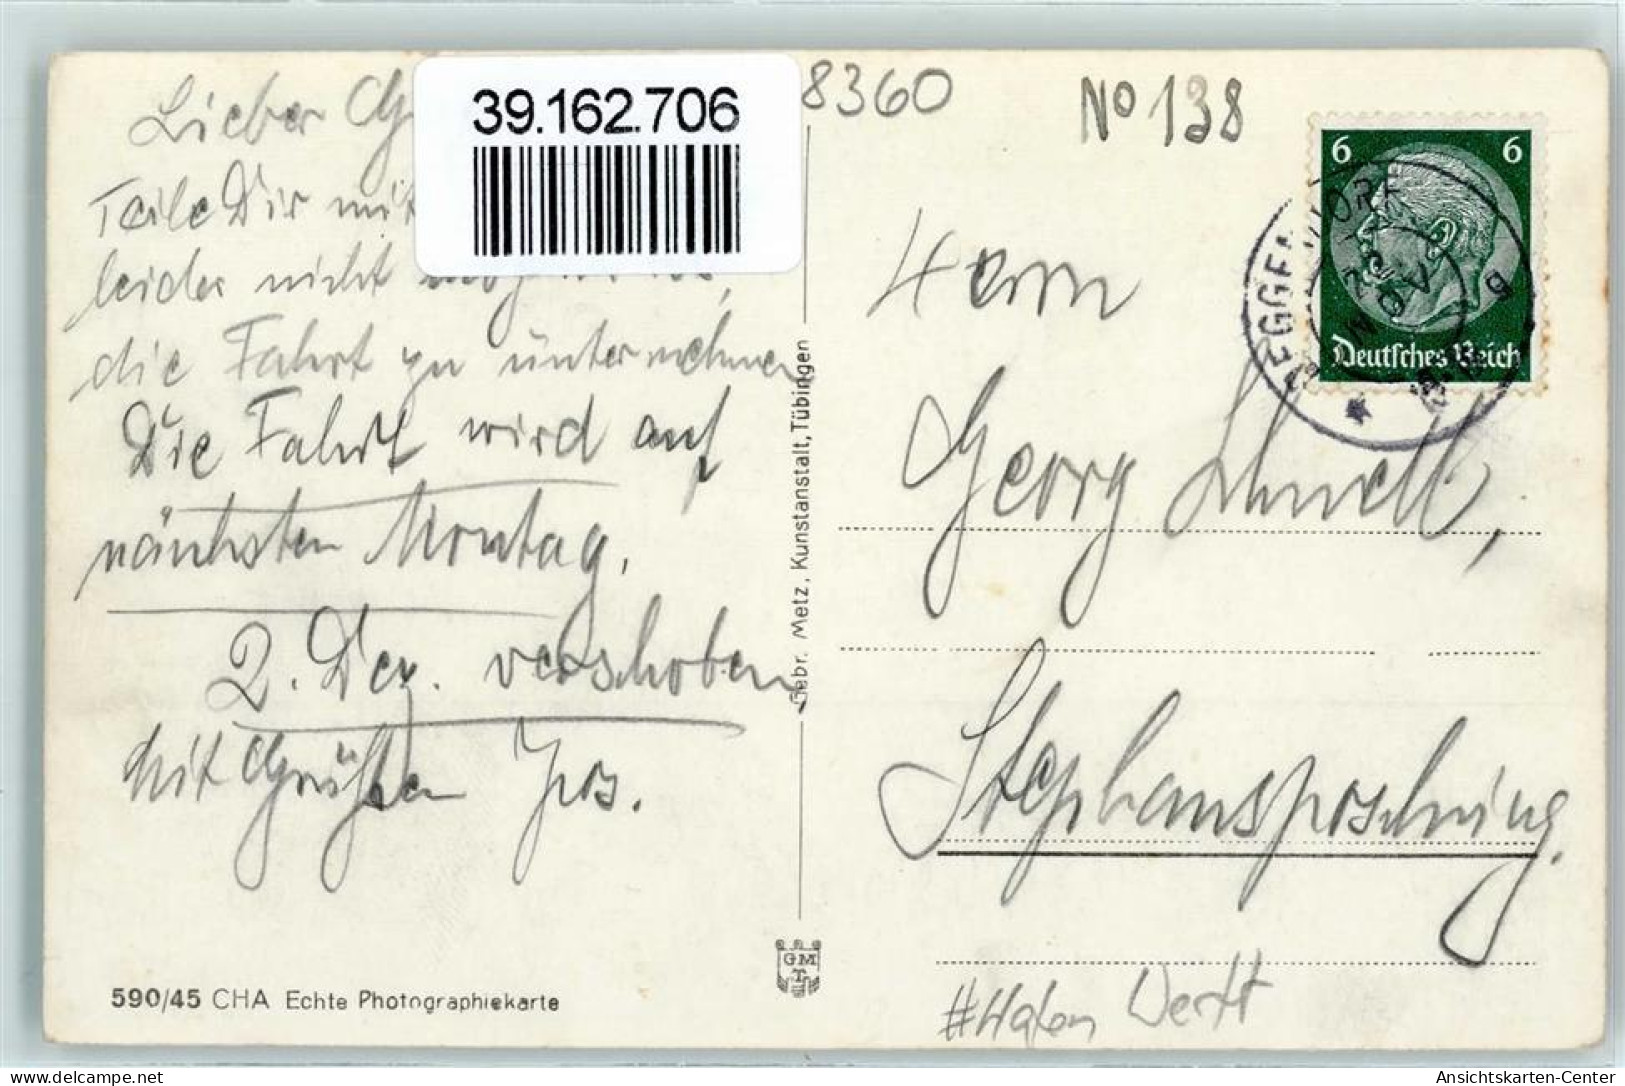 39.162.706
8360
No 138
Lieber
Teile Dir mit
leider nicht
die Fahrt zu unternehmen
Die Fahrt wird auf
nächsten Montag,
2. Dez. verschoben
Mit Grüßen Jos.
590/45 CHA Echte Photographiekarte
Gebr. Metz, Kunstanstalt, Tübingen
GMT
6 6
Deutsches Reich
DEGGENDORF
Herrn
Georg Schnell,
Stephansposching.
Ansichtskarten-Center
delcampe.net